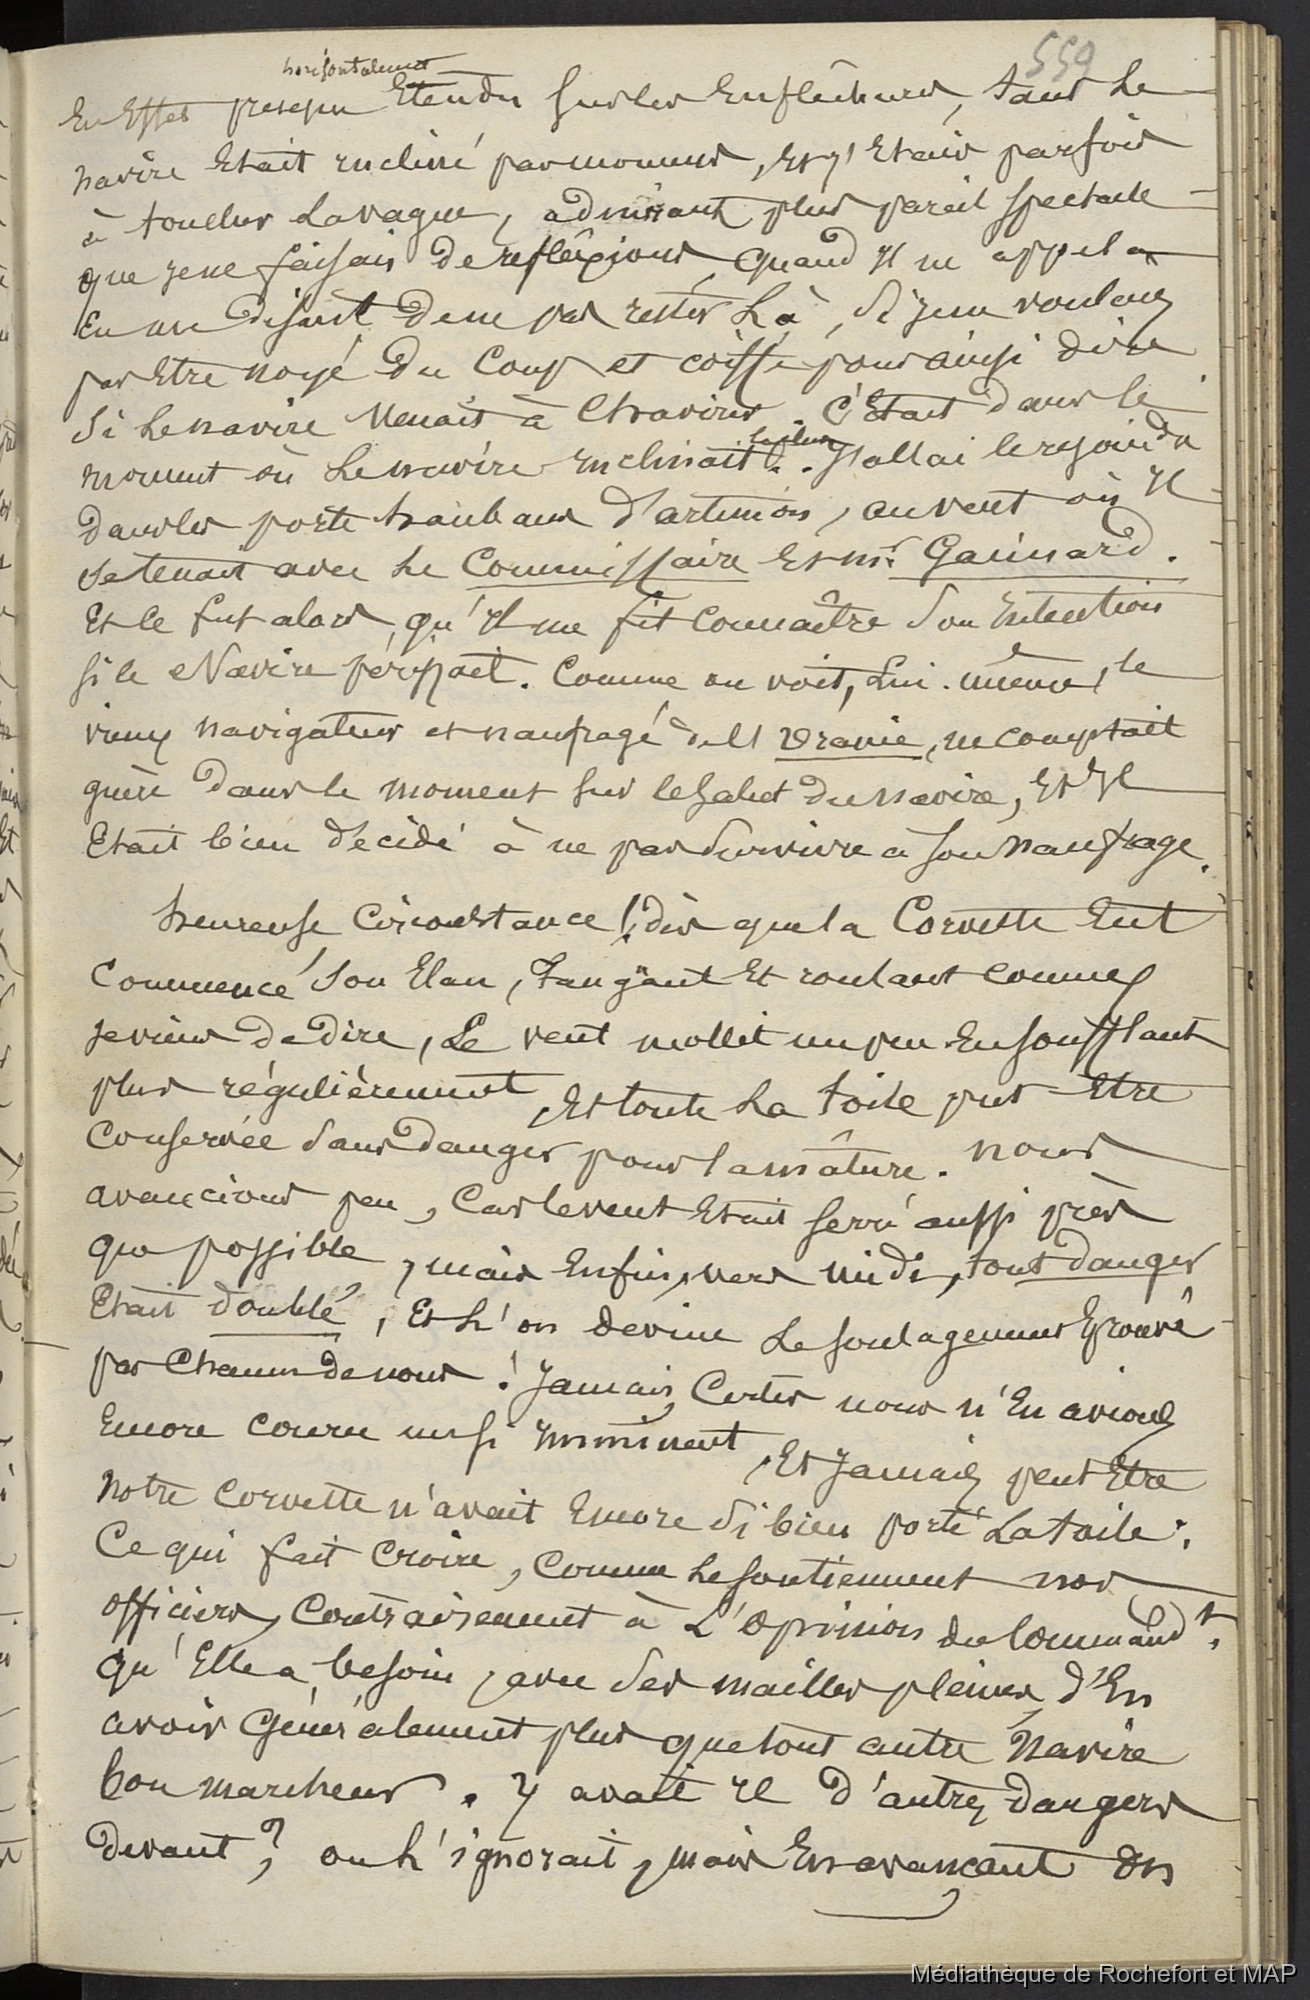 559
horisontalement
En Effet presque Etendu sur les Enflêchures, tant Le
navire Etait incliné par momens, Et j'Etais parfois
à toucher La vague, admirant plus pareil spectacle
que je ne faisais de reflêxions, quand Il m'appela
En me disant de ne pas rester Là, Si je ne voulais
pas Etre noyé du Coup et coiffé pour ainsi dire
Si Le navire Venait à Chavirer. C'Etait dans le
moment où Le navire inclinait le plus. J'allai le rejoindre
dans les porte haubans d'artimon, au vent où Il
se tenait avec Le Commissaire Et mr. Gaimard.
Et ce fut alors, qu'Il me fit Connaître Son Intention
si le Navire périssait. Comme on voit, Lui-même, le
vieux navigateur et naufragé de l'Uranie, ne comptait
guère dans le moment sur le Salut du navire, Et Il
Etait bien décidé à ne pas Survivre à son naufrage.
heureuse Circonstance! dès que la Corvette Eut
Commencé Son Elan, Tangant Et roulant comme
je viens de dire, Le vent mollit un peu En soufflant
plus régulièrement, Et toute La toile put Etre
Conservée Sans Danger pour la mâture. nous
avancions peu, Car le vent Etait serré aussi près
que possible, mais Enfin, vers midi, tout danger
Etait doublé, Et L'on devine Le soulagement Eprouvé
par Chacun de nous! Jamais, Certes nous n'En avions
Encore couru un si Imminent, Et Jamais peut Etre
Notre Corvette n'avait Encore Si bien porté La toile;
Ce qui fait Croire, Comme Le soutiennent nos
officiers, Contrairement à L'Opinion du Commandt.
qu'Elle a besoin, avec Ses mailles pleines, d'En
avoir Généralement plus que tout autre Navire
bon marcheur. Y avait Il d'autres dangers
devant? on L'ignorait, mais En avançant On
Médiathèque de Rochefort et MAP